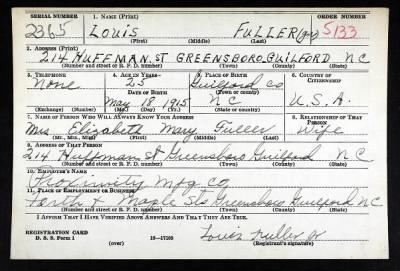 SERIAL NUMBER 1. NAME (Print) ORDER NUMBER
2365 LOUIS FULLER (Jr) 5133
(First) (Middle) (Last)
2. ADDRESS (Print)
214 HUFFMAN ST GREENSBORO GUILFORD NC
(Number and street or R. F. D. number) (Town) (County) (State)
3. TELEPHONE 4. AGE IN YEARS 5. PLACE OF BIRTH 6. COUNTRY OF CITIZENSHIP
None 25 Guilford Co
DATE OF BIRTH (Town or county)
May 18 1915 NC U.S.A.
(Exchange) (Number) (Mo.) (Day) (Yr.) (State or country)
7. NAME OF PERSON WHO WILL ALWAYS KNOW YOUR ADDRESS 8. RELATIONSHIP OF THAT PERSON
Mrs Elizabeth Mary Fuller Wife
(Mr., Mrs., Miss) (First) (Middle) (Last)
9. ADDRESS OF THAT PERSON
214 Huffman St Greensboro Guilford NC
(Number and street or R. F. D. number) (Town) (County) (State)
10. EMPLOYER'S NAME
Proximity Mfg Co
11. PLACE OF EMPLOYMENT OR BUSINESS
Forth & Maple Sts Greensboro Guilford NC
(Number and street or R. F. D. number) (Town) (County) (State)
I AFFIRM THAT I HAVE VERIFIED ABOVE ANSWERS AND THAT THEY ARE TRUE.
REGISTRATION CARD Louis Fuller Jr
D. S. S. Form 1 (over) 16—17105 (Registrant's signature)